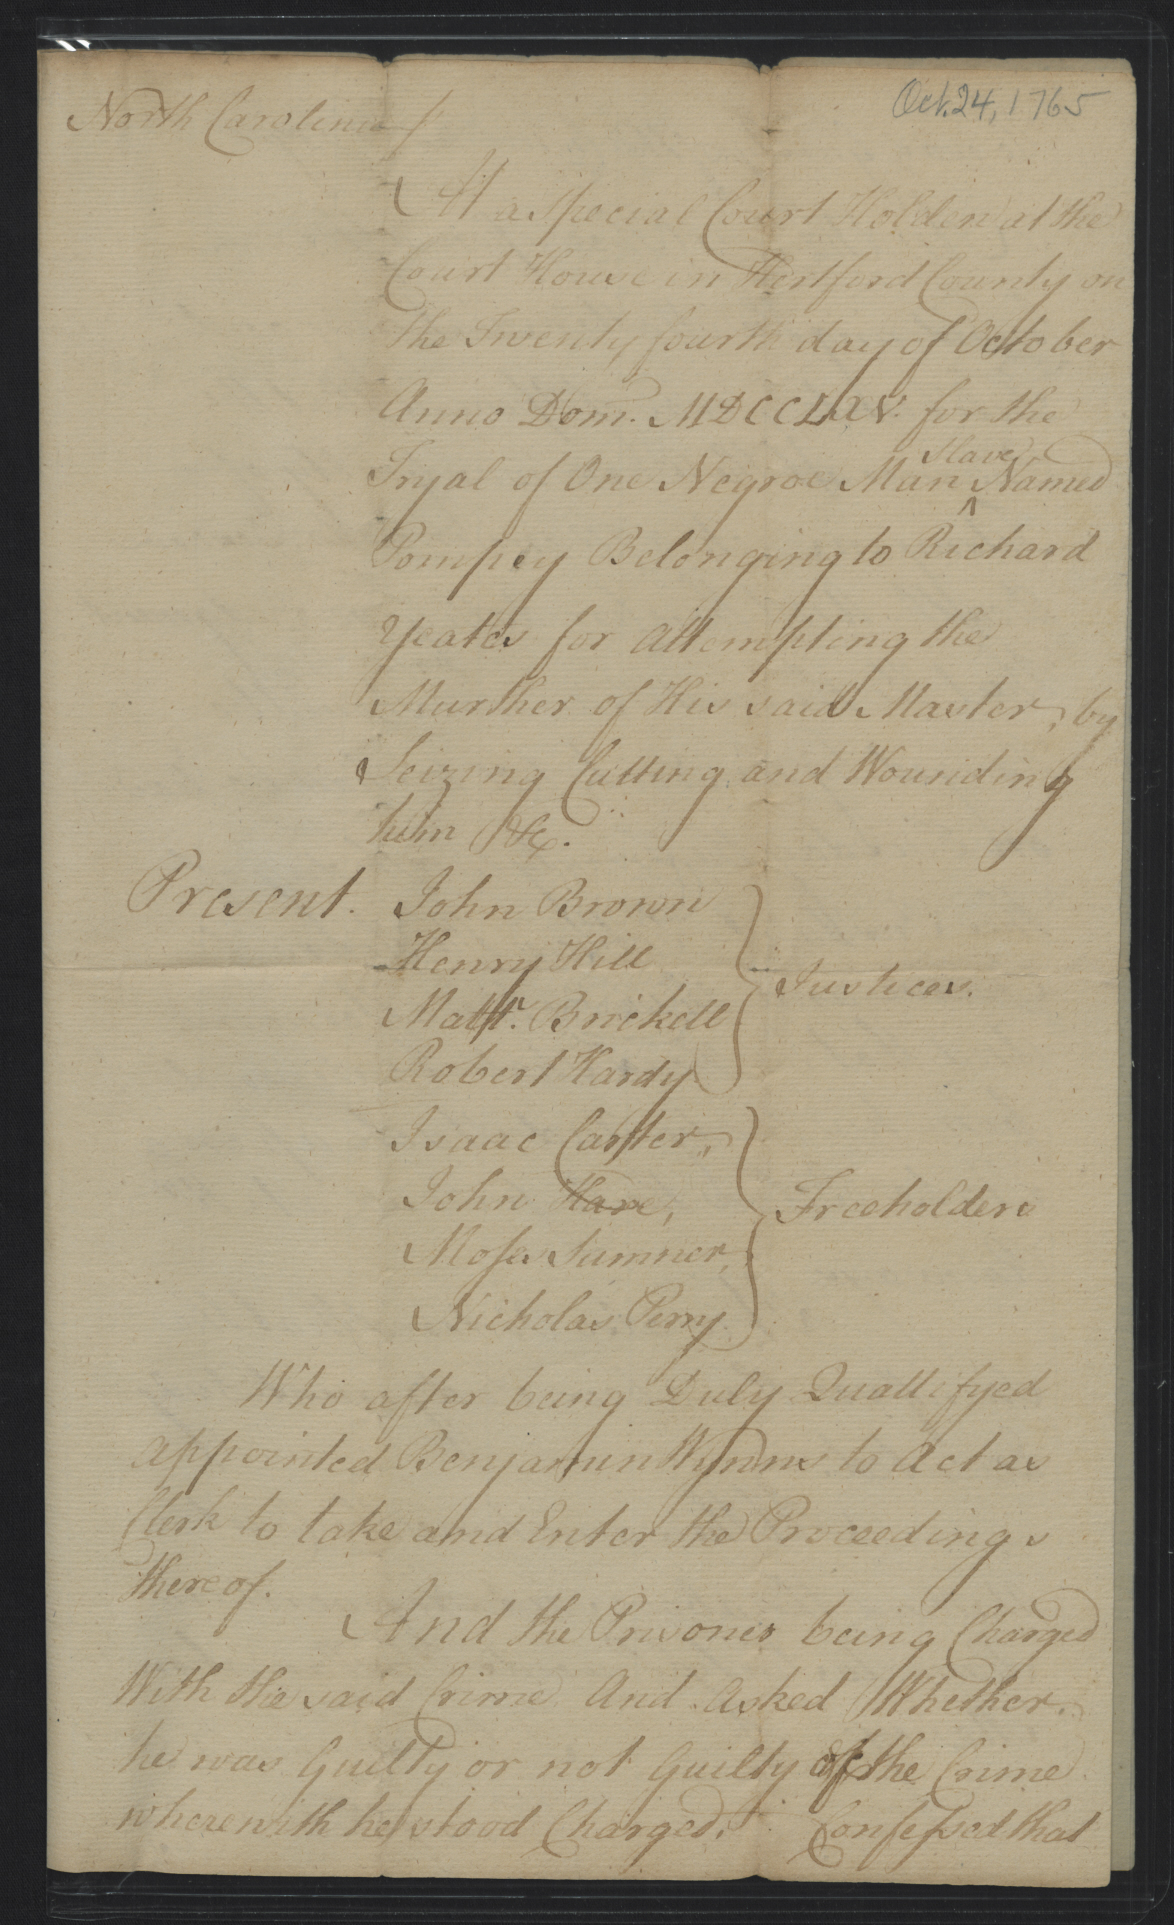 Oct. 24, 1765
North Carolina
At a Special Court Holden at the
Court House in Hertford County on
the Twenty fourth day of October
Anno Dom. MDCCLXV. for the
Tryal of One Negroe Man ^ Slave Named
Pompey Belonging to Richard
Yeates for attempting the
Murther of His said Master, by
Seizing Cutting and Wounding
him &c.
Present. John Brown
Henry Hill
Matt. Brickell
Robert Hardy
Justices.
Isaac Carter,
John Hare,
Moses Sumner,
Nicholas Perry
Freeholders
Who after being Duly Quallifyed
appointed Benjamin Wynns to Act as
Clerk to take and Enter the Proceedings
thereof.
And the Prisoner being Charged
With the said Crime And Asked Whether
he was Guilty or not Guilty of the Crime
wherewith he stood Charged. Confessed that